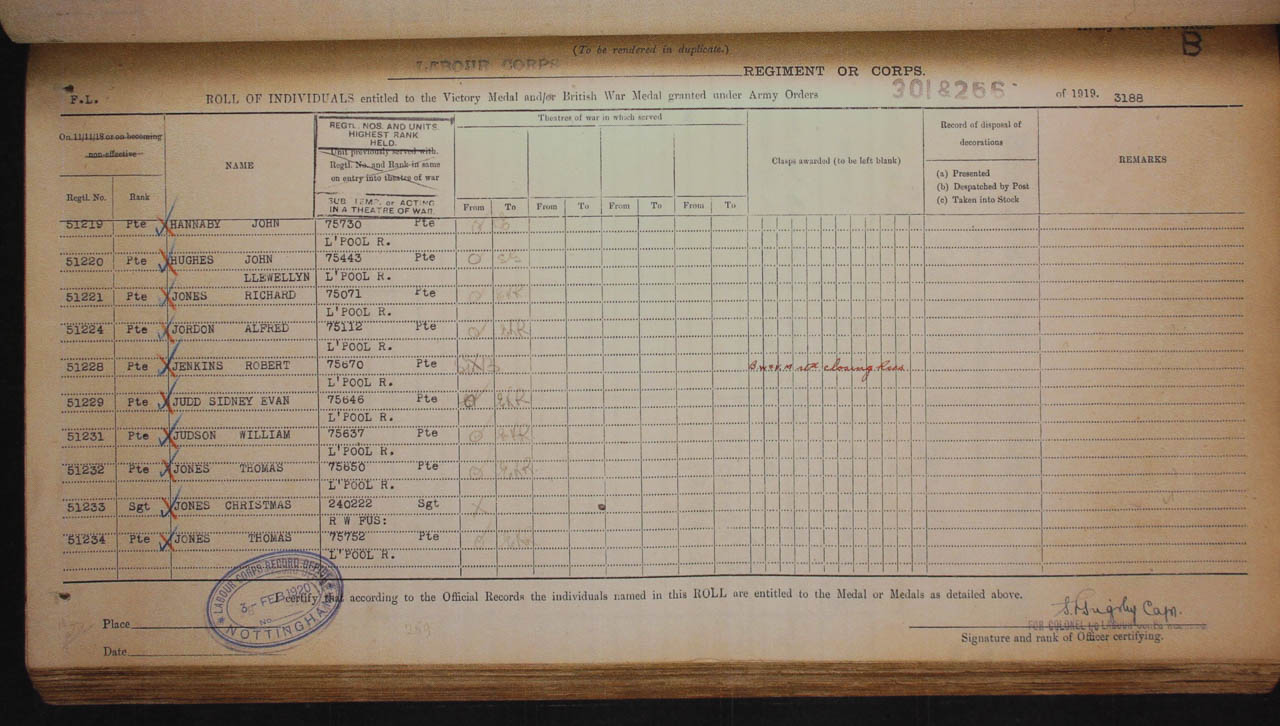 B
(To be rendered in duplicate.)
LABOUR CORPS REGIMENT OR CORPS.
F.L. ROLL OF INDIVIDUALS entitled to the Victory Medal and/or British War Medal granted under Army Orders 301 & 266 of 1919. 3188
On 11/11/18 or on becoming non-effective
NAME
REGTL. NOS. AND UNITS.
HIGHEST RANK
HELD.
Unit previously served with.
Regtl. No. and Rank in same
on entry into theatre of war
SUB. TEMP. or ACTING
IN A THEATRE OF WAR.
Theatres of war in which served
Clasps awarded (to be left blank)
Record of disposal of
decorations
(a) Presented
(b) Despatched by Post
(c) Taken into Stock
REMARKS
Regtl. No. Rank From To From To From To From To
51219 Pte HANNABY JOHN 75730 Pte
L'POOL R.
51220 Pte HUGHES JOHN 75443 Pte
LLEWELLYN L'POOL R.
51221 Pte JONES RICHARD 75071 Pte
L'POOL R.
51224 Pte JORDON ALFRED 75112 Pte
L'POOL R.
51228 Pte JENKINS ROBERT 75670 Pte closing
L'POOL R.
51229 Pte JUDD SIDNEY EVAN 75646 Pte
L'POOL R.
51231 Pte JUDSON WILLIAM 75637 Pte
L'POOL R.
51232 Pte JONES THOMAS 75650 Pte
L'POOL R.
51233 Sgt JONES CHRISTMAS 240222 Sgt
R W FUS:
51234 Pte JONES THOMAS 75752 Pte
L'POOL R.
LABOUR CORPS RECORD DEPT
FEB 1920
No.
NOTTINGHAM
I certify that according to the Official Records the individuals named in this ROLL are entitled to the Medal or Medals as detailed above.
Place
Capt.
FOR COLONEL
Date
Signature and rank of Officer certifying.